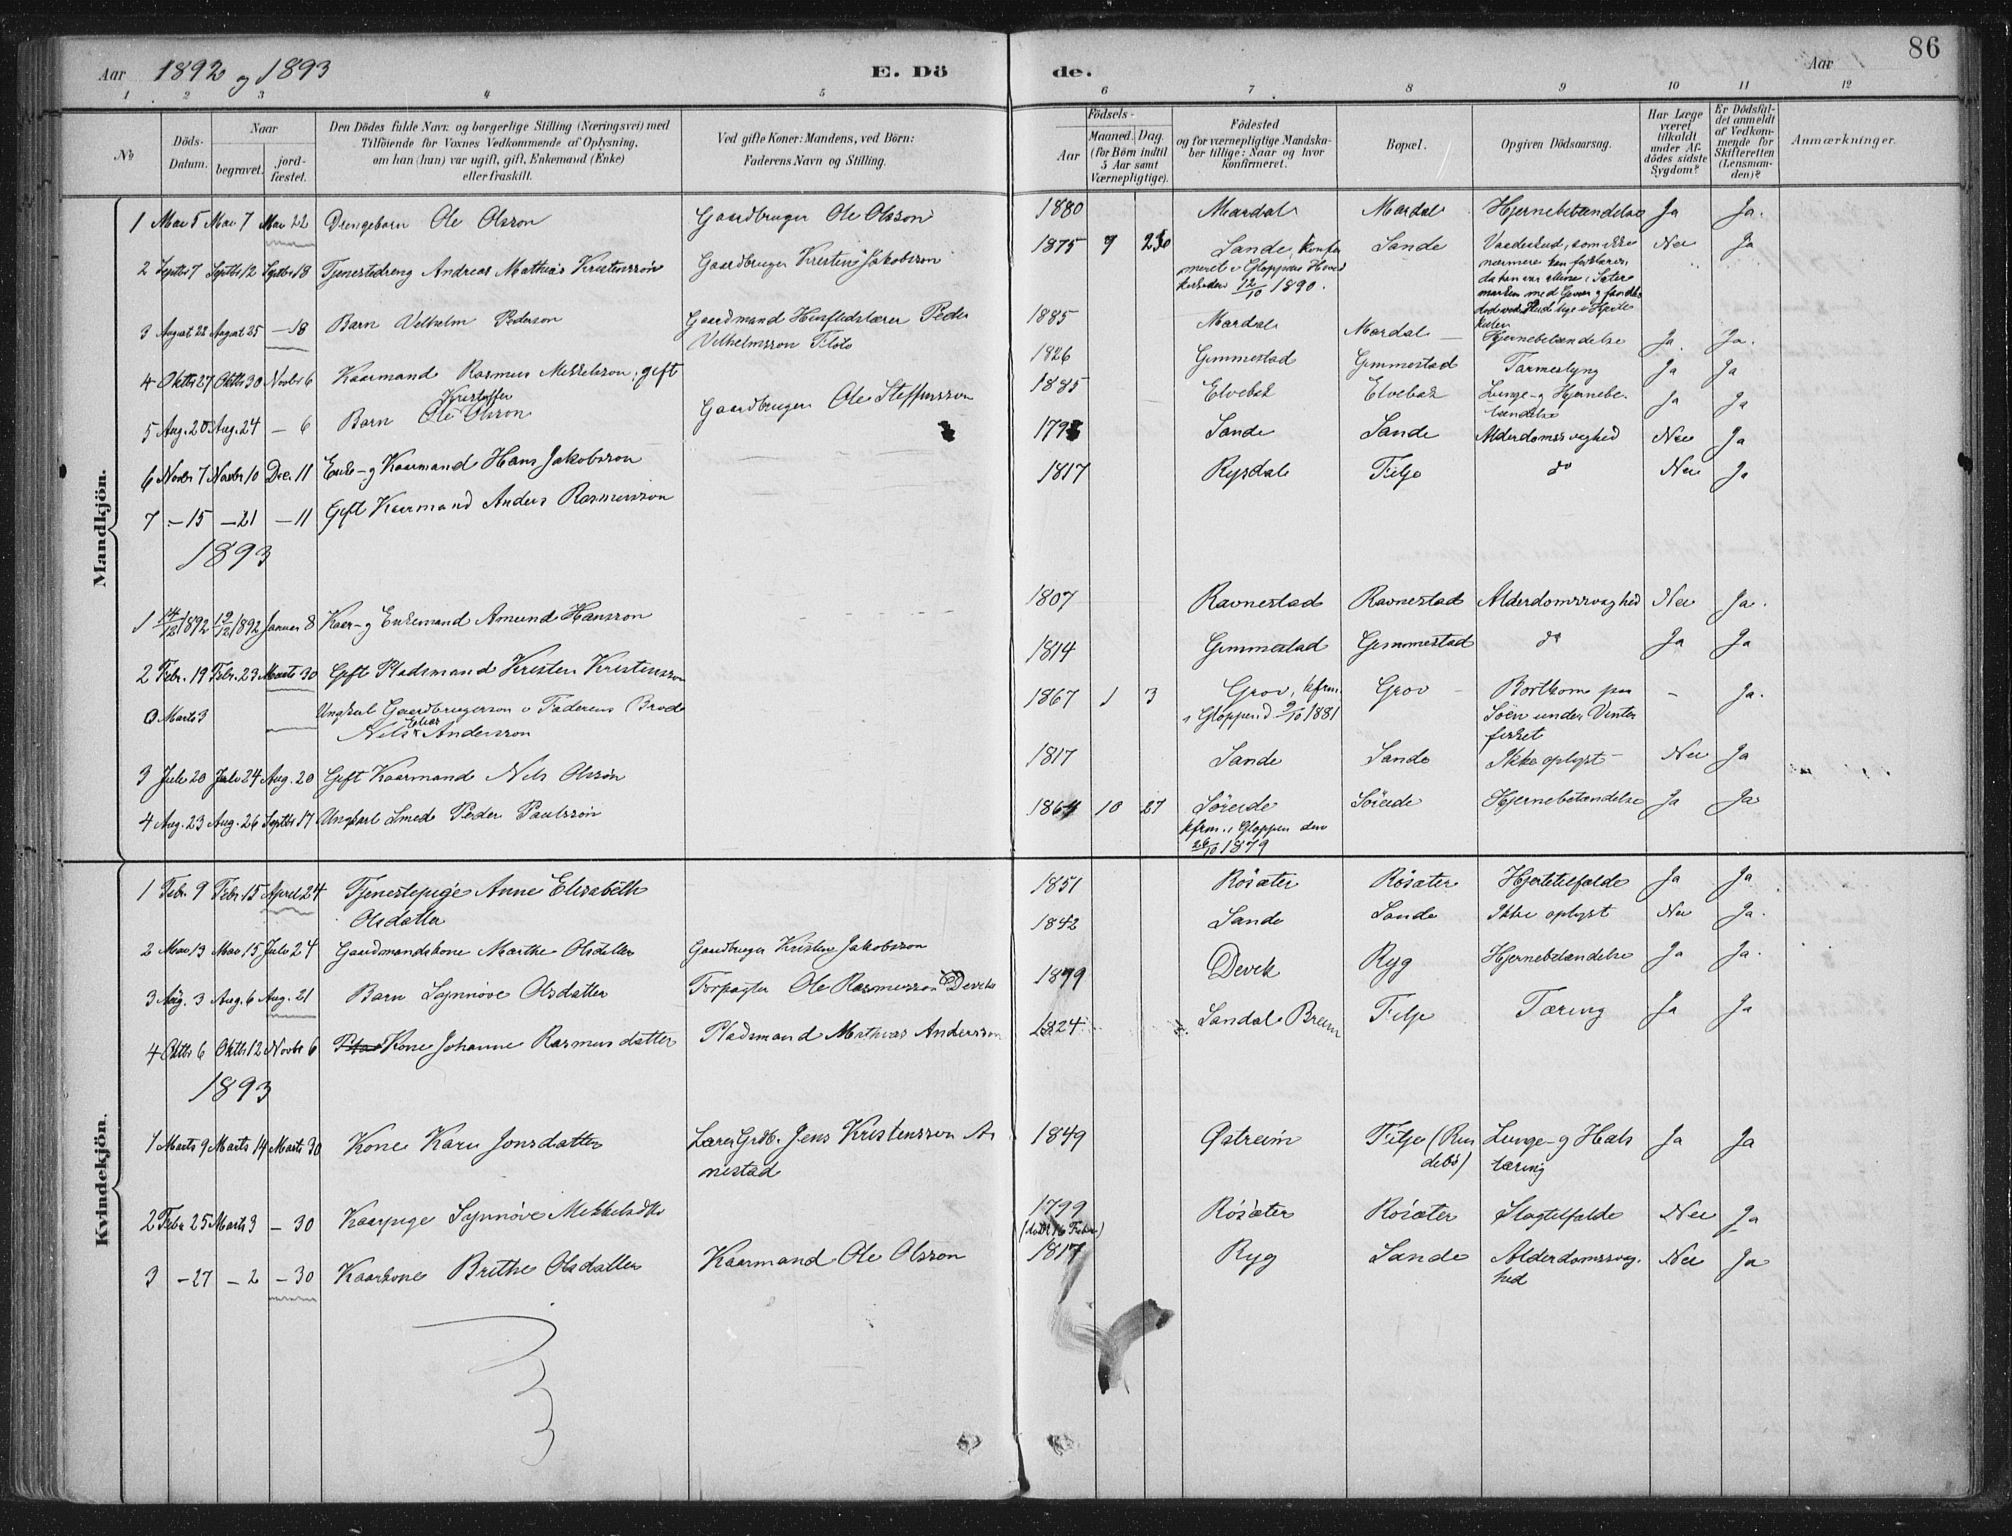 86
Aar 1892 og 1893 E. Dö de. Aar
1 2 3 4 5 6 7 8 9 10 11 12
No Döds-Datum. Naar begravet. jord-fæstet. Den Dödes fulde Navn og borgerlige Stilling (Næringsvei) med Tilföiende for Voxnes Vedkommende af Oplysning, om han (hun) var ugift, gift, Enkemand (Enke) eller fraskilt. Ved gifte Koner: Mandens, ved Börn: Faderens Navn og Stilling. Födsels- Aar Maaned. Dag. (for Börn indtil 5 Aar samt Værnepligtige). Födested og for værnepligtige Mandska-ber tillige: Naar og hvor konfirmeret. Bopæl. Opgiven Dödsaarsag. Har Læge været tilkaldt under Af-dödes sidste Sygdom? Er Dödsfal-det anmeldt af Vedkom-mende for Skifteretten (Lensman-den)? Anmærkninger.
Mandkjön.
1 Mai 5 Mai 7 Mai 22 Drengebarn Ole Olsson Gaardbruger Ole Olsson 1880 Mardal Mardal Hjernebetændelse Ja Ja.
2 Septbr 7 Septbr 12 Septbr 18 Tjenestedreng Andreas Mathias Kristensson Gaardbruger Kristen Jakobsson 1875 9 Sande, konfir
meret i Gloppen Hoved
kirke den 12/10 1890. Sande Vaadeskud, som ikke
nærmere kan forklares
da han var allene i Sæter
marken med Gevær og fandtes
død Nei Ja
3 August 22 August 25 — 18 Barn Vilhelm Pederson Gaardmand Husflidslærer Peder
Vilhelmsson Floto 1885 Mardal Mardal Hjernebetændelse Ja. Ja.
4 Oktbr 27 Oktbr 30 Novbr 6 Kaarmand Rasmus Mikkelsson, gift 1826 Gimmestad Gimmestad Tarmeslyng Ja Ja
5 Aug. 20 Aug. 24 — 6 Barn Kristoffer
Ole Olsson Gaardbruger Ole Steffensson 1885 Elvebak Elvebak Lunge- og Hjernebe-
tændelse Ja Ja
6 Novbr 7 Novbr 10 Dec. 11 Enke- og Kaarmand Hans Jakobsson Sande Sande Alderdomssvaghed Nei Ja
7 — 15 — 21 — 11 Gift Kaarmand Anders Rasmusson 1817 Rysdal Filje do Nei Ja
1893
1 14/12 1892 19/12 1892 Januar 8 Kaar- og Enkemand Amund Hansson 1807 Ravnestad Ravnestad Alderdomssvaghed Nei Ja.
2 Febr. 19 Febr. 23 Marts 30 Gift Pladsmand Kristen Kristensson 1814 Gimmestad Gimmestad do Ja Ja
0 Marts 3 Ungkarl Gaardbrugerson i Faderens Brød
Nils Elias Andersson 1867 1 3 Grov, kfrm.
i Gloppen d. 9/10 1881 Grov Bortkom paa
Söen under Vinter
fisket — Ja.
3 Juli 20 Juli 24 Aug. 20 Gift Kaarmand Nils Olsson 1817 Sande Sande Ikke oplyst Nei Ja
4 Aug. 23 Aug. 26 Septbr 17 Ungkarl Smed Peder Paulsson 1864 10 27 Söreide
kfrm. i Gloppen den
26/10 1879 Söreide Hjernebetændelse Ja Ja
Kvindekjön.
1 Febr. 9 Febr. 15 April 24 Tjenestepige Anne Elisabeth
Olsdatter 1851 Rösæter Rösæter Hjertetilfælde Ja Ja
2 Mai 13 Mai 15 Juli 24 Gaardmandskone Marthe Olsdatter Gaardbruger Kristen Jakobsson 1842 Sande Sande Ikke oplyst Nei Ja.
3 Aug. 3 Aug. 6 Aug. 21 Barn Synnöve Olsdatter Forpagter Ole Rasmusson Devik 1879 Devik Ryg Hjernebetændelse Ja Ja.
4 Oktbr 6 Oktbr 12 Novbr 6 Kone Johanne Rasmusdatter Pladsmand Mathias Andersson 1824 Sandal Breim Filje Tæring Ja Ja
1893
1 Marts 9 Marts 14 Marts 30 Kone Kari Jonsdatter Lærer Grdb. Jens Kristensson An
nestad 1849 Østreim Filje (Run
debö) Lunge- og Hals
tæring Ja Ja
2 Febr 25 Marts 3 — 30 Kaarpige Synnöve Mikkelsdtr 1799
(døbt 16 Febr.) Rösæter Rösæter Slagtilfælde Nei Ja
3 — 27 — 2 — 30 Kaarkone Brithe Olsdatter Kaarmand Ole Olsson 1817 Ryg Sande Alderdomssvag-
hed Nei Ja